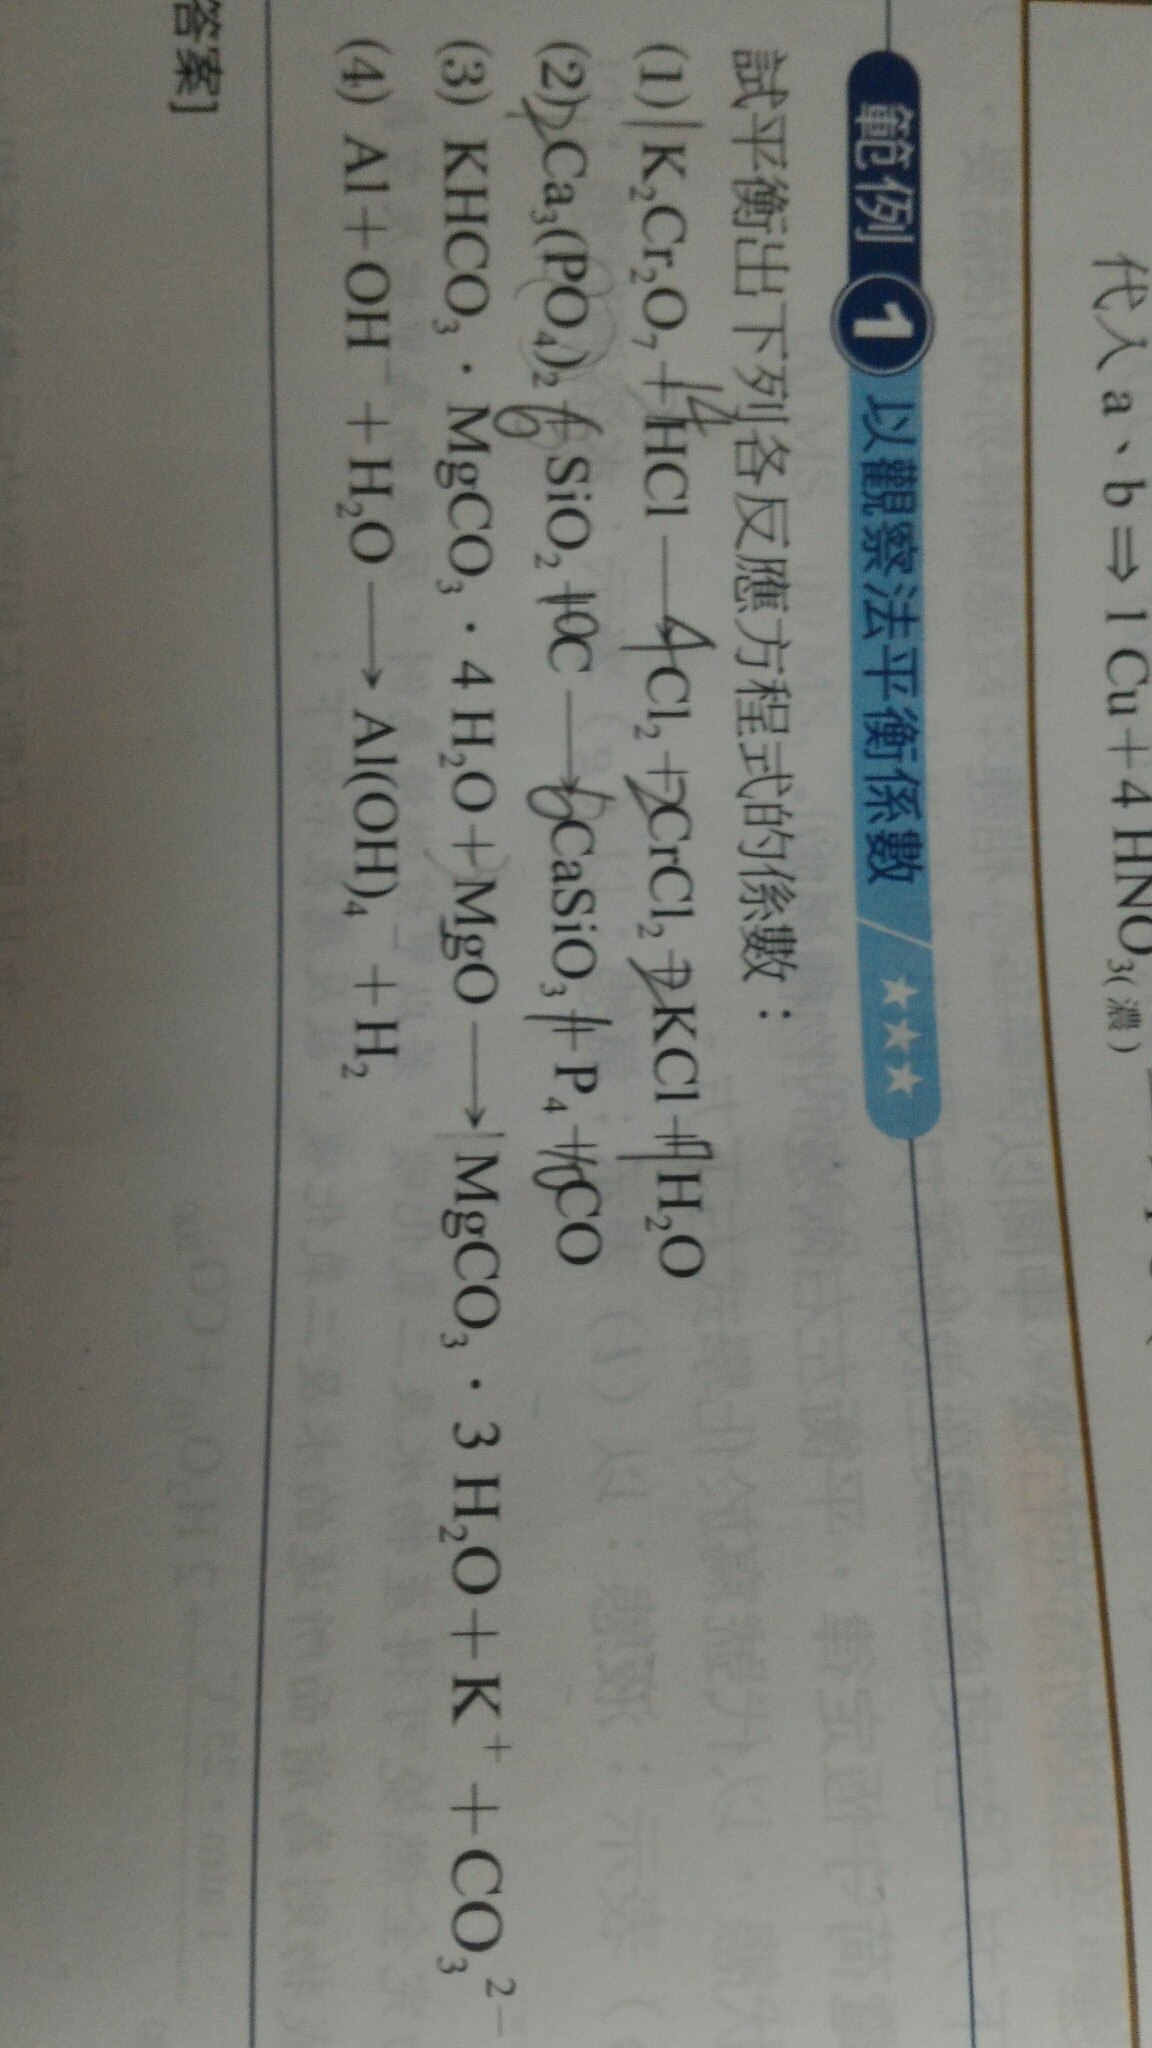 代入 a、b ⇒ 1 Cu + 4 HNO₃(濃)
範例 1 以觀察法平衡係數 ★★★
試平衡出下列各反應方程式的係數：
(1) 1 K₂Cr₂O₇ + 14 HCl ⟶ 4 Cl₂ + 2 CrCl₂ + 2 KCl + 7 H₂O
(2) 2 Ca₃(PO₄)₂ + 6 SiO₂ + 10 C ⟶ 6 CaSiO₃ + 1 P₄ + 10 CO
(3) KHCO₃．MgCO₃．4 H₂O + MgO ⟶ 1 MgCO₃．3 H₂O + K⁺ + CO₃²⁻
(4) Al + OH⁻ + H₂O ⟶ Al(OH)₄⁻ + H₂
答案]